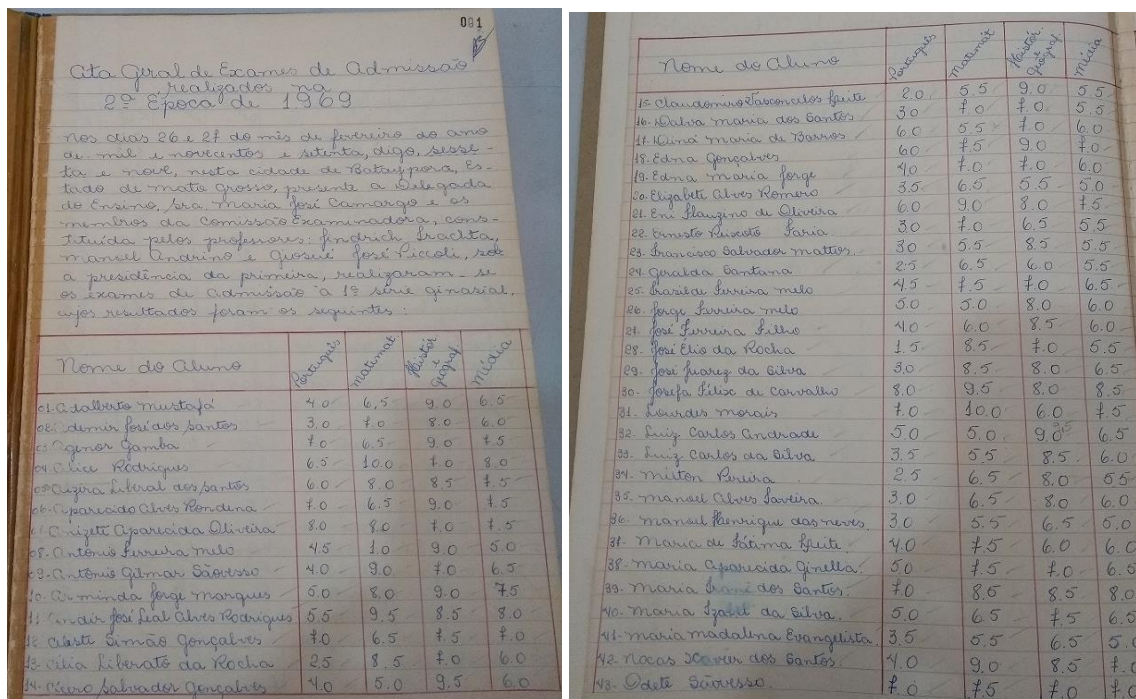 001
Ata Geral de Exames de Admissão
realizados na
2ª Época de 1969
Nos dias 26 e 27 do mês de fevereiro do ano
de mil e novecentos e setenta, digo, sesse-
ta e nove, nesta cidade de Batayporã, Es-
tado de Mato Grosso, presente a Delegada
do Ensino, sra. Maria José Camargo e os
membros da Comissão Examinadora, cons-
tituída pelos professores: Jindrich Trachta,
Manoel Andrino e José Piccoli, sob
a presidência da primeira, realizaram-se
os exames de Admissão à 1ª série ginasial,
cujos resultados foram os seguintes:
Nome do Aluno Português Matemát. Histór. e geograf. Média
01. Adalberto Mustafá 4.0 6,5 9.0 6.5
02. Ademir José dos Santos 3,0 7.0 8.0 6.0
03. Agenor Gamba 7.0 6.5 9.0 7.5
04. Alice Rodrigues 6.5 10.0 7.0 8.0
05. Alzira Liberal dos Santos 6.0 8.0 8.5 7.5
06. Aparecido Alves Rondena 7.0 6.5 9.0 7.5
07. Anizete Aparecida Oliveira 8.0 8.0 7.0 7.5
08. Antônio Ferreira Melo 4.5 1.0 9.0 5.0
09. Antônio Gilmar Sãovesso 4.0 9.0 7.0 6.5
10. Arminda Jorge Marques 5.0 8.0 9.0 7.5
11. José Leal Alves Rodrigues 5.5 9.5 8.5 8.0
12. Celeste Simão Gonçalves 7.0 6.5 7.5 7.0
13. Célia Liberato da Rocha 2.5 8.5 7.0 6.0
14. Cícero Salvador Gonçalves 4.0 5.0 9.5 6.0
Nome do Aluno Português Matemát Histór. e geograf. Média
15. Claudomiro Vasconcelos Leite 2.0 5.5 9.0 5.5
16. Dalva Maria dos Santos 3.0 7.0 7.0 5.5
17. Maria de Barros 6.0 5.5 7.0 6.0
18. Edna Gonçalves 6.0 7.5 9.0 7.0
19. Edna Maria Jorge 4.0 7.0 7.0 6.0
20. Elizabete Alves Romero 3.5 6.5 5.5 5.0
21. Eni Flauzino de Oliveira 6.0 9.0 8.0 7.5
22. Ernesto Peixoto Faria 3.0 7.0 6.5 5.5
23. Francisco Salvador Mattos 3.0 5.5 8.5 5.5
24. Geralda Santana 2.5 6.5 6.0 5.5
25. Ferreira Melo 4.5 7.5 7.0 6.5
26. Jorge Ferreira Melo 5.0 5.0 8.0 6.0
27. José Ferreira Filho 4.0 6.0 8.5 6.0
28. José Élio da Rocha 1.5 8.5 7.0 5.5
29. José Juarez da Silva 3.0 8.5 8.0 6.5
30. Josefa Félix de Carvalho 8.0 9.5 8.0 8.5
31. Lourdes Morais 7.0 10.0 6.0 7.5
32. Luiz Carlos Andrade 5.0 5.0 9.0 6.5
33. Luiz Carlos da Silva 3.5 5.5 8.5 6.0
34. Milton Pereira 2.5 6.5 8.0 5.5
35. Manoel Alves Taveira 3.0 6.5 8.0 6.0
36. Manoel Henrique das Neves 3.0 5.5 6.5 5.0
37. Maria de Fátima Leite 4.0 7.5 6.0 6.0
38. Maria Aparecida Ginella 5.0 7.5 7.0 6.5
39. Maria Irani dos Santos 7.0 8.5 8.5 8.0
40. Maria Izabel da Silva 5.0 6.5 7.5 6.5
41. Maria Madalena Evangelista 3.5 5.5 6.5 5.0
42. Nocas Xavier dos Santos 4.0 9.0 8.5 7.0
43. Odete Sãovesso 7.0 7.5 7.0 7.0